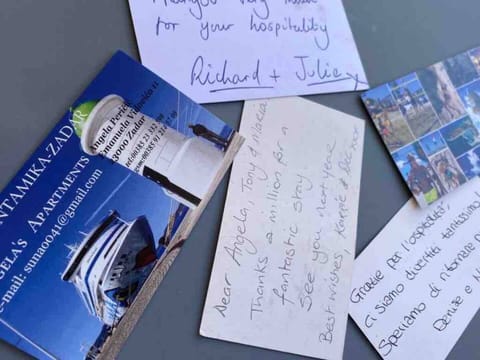 for your hospitality
Richard + Julie x
NTAMIKA-ZADAR
GELA'S APARTMENTS
e-mail: suna0041@gmail.com
Angela Perić
Emanuela Vidovića
Zadar
Dear Angela, Tony & Maria
Thanks a million for a
fantastic stay
See you next year
Best wishes
Grazie per l'ospitalità,
ci siamo divertiti tantissimo
Speriamo di ritornare
Denise e